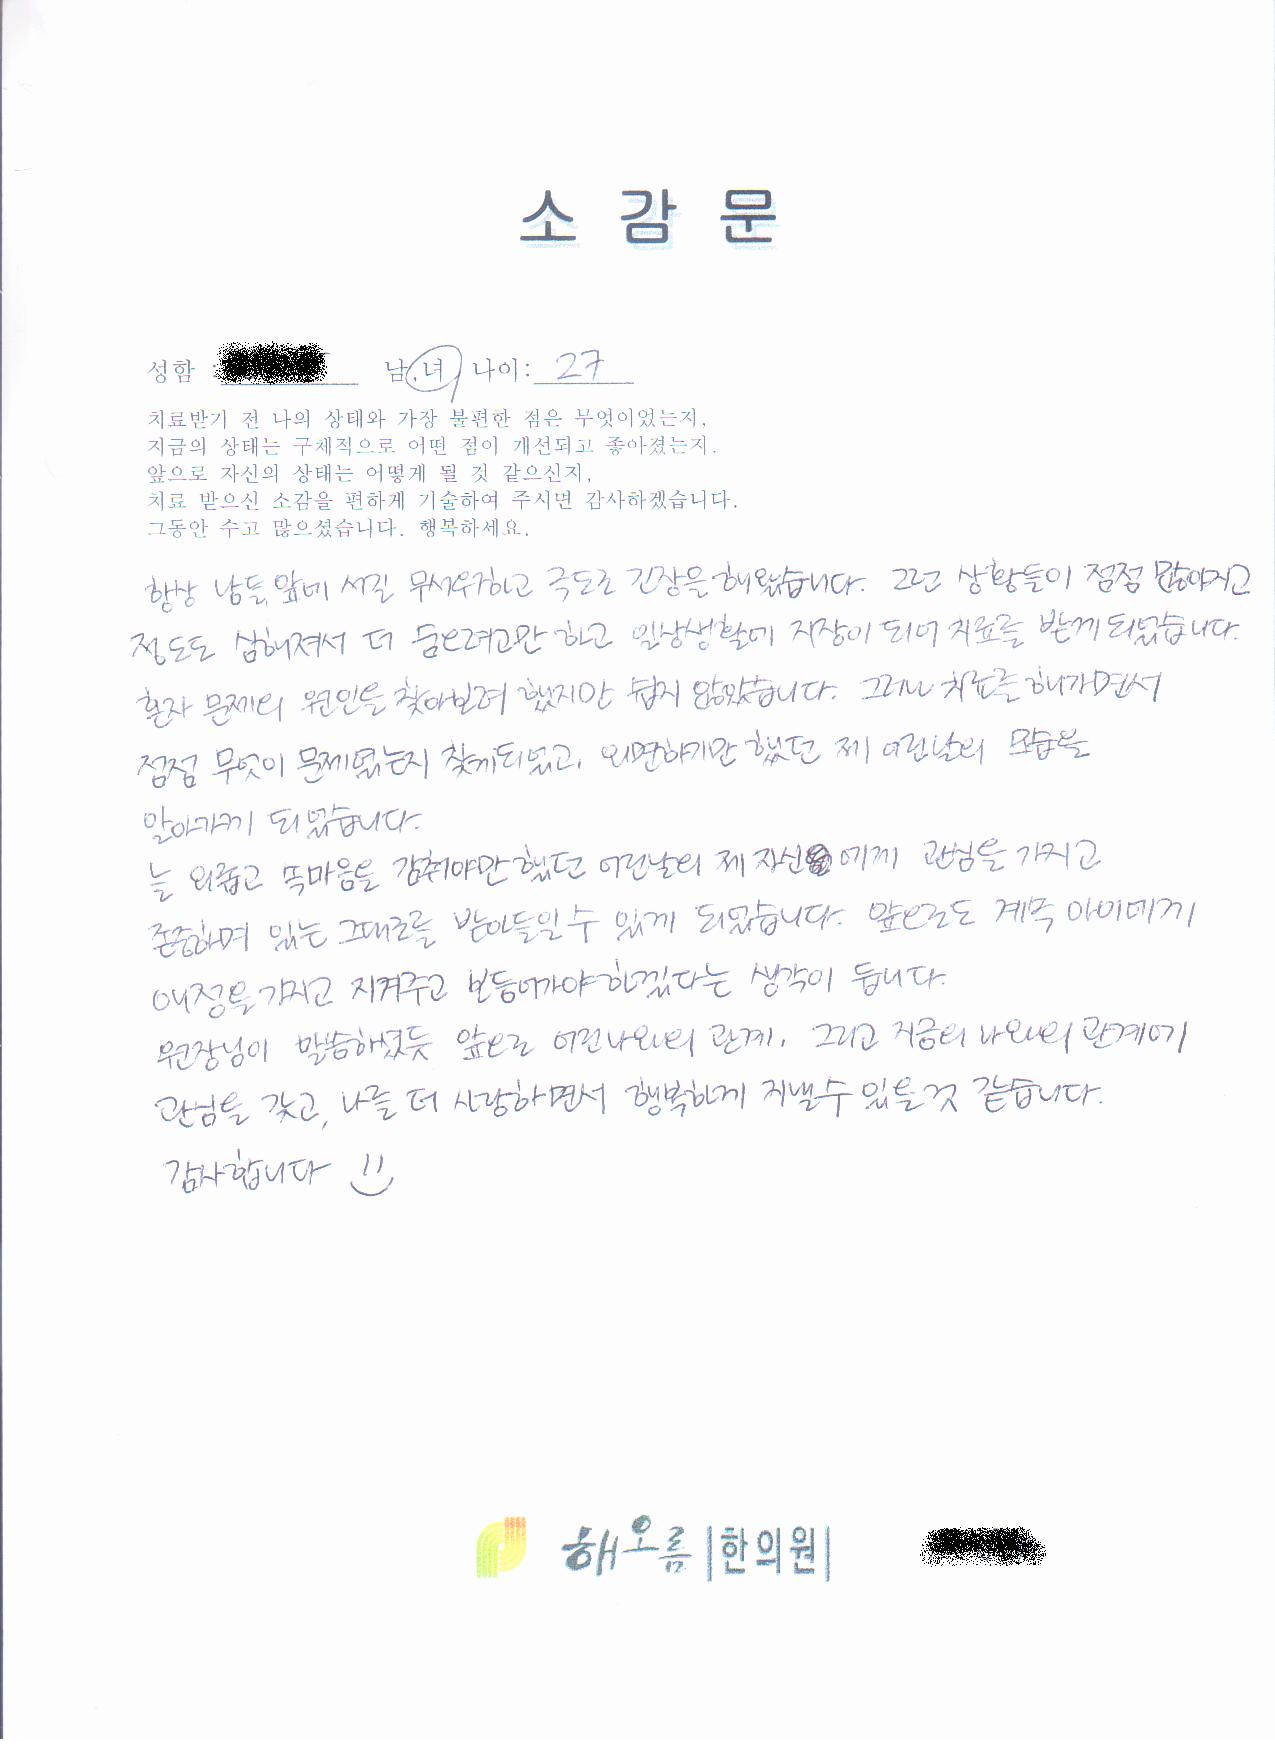 소 감 문
성함 남,녀 나이: 27
치료받기 전 나의 상태와 가장 불편한 점은 무엇이었는지,
지금의 상태는 구체적으로 어떤 점이 개선되고 좋아졌는지.
앞으로 자신의 상태는 어떻게 될 것 같으신지,
치료 받으신 소감을 편하게 기술하여 주시면 감사하겠습니다.
그동안 수고 많으셨습니다. 행복하세요.
항상 남들 앞에 서길 무서워하고 극도로 긴장을 해왔습니다. 그런 상황들이 점점 많아지고
정도도 심해져서 더 숨으려고만 하고 일상생활에 지장이 되어 치료를 받게 되었습니다.
혼자 문제의 원인을 찾아보려 했지만 쉽지 않았습니다. 그러나 치료를 해가면서
점점 무엇이 문제였는지 찾게되었고, 외면하기만 했던 제 어린날의 모습을
알아가게 되었습니다.
늘 외롭고 속마음을 감춰야만 했던 어린날의 제 자신에게 관심을 가지고
존중하며 있는 그대로를 받아들일 수 있게 되었습니다. 앞으로도 계속 아이에게
애정을 가지고 지켜주고 보듬어가야 하겠다는 생각이 듭니다.
원장님이 말씀하셨듯 앞으로 어린나와의 관계, 그리고 지금의 나와의 관계에
관심을 갖고, 나를 더 사랑하면서 행복하게 지낼수 있을것 같습니다.
감사합니다
해오름 한의원